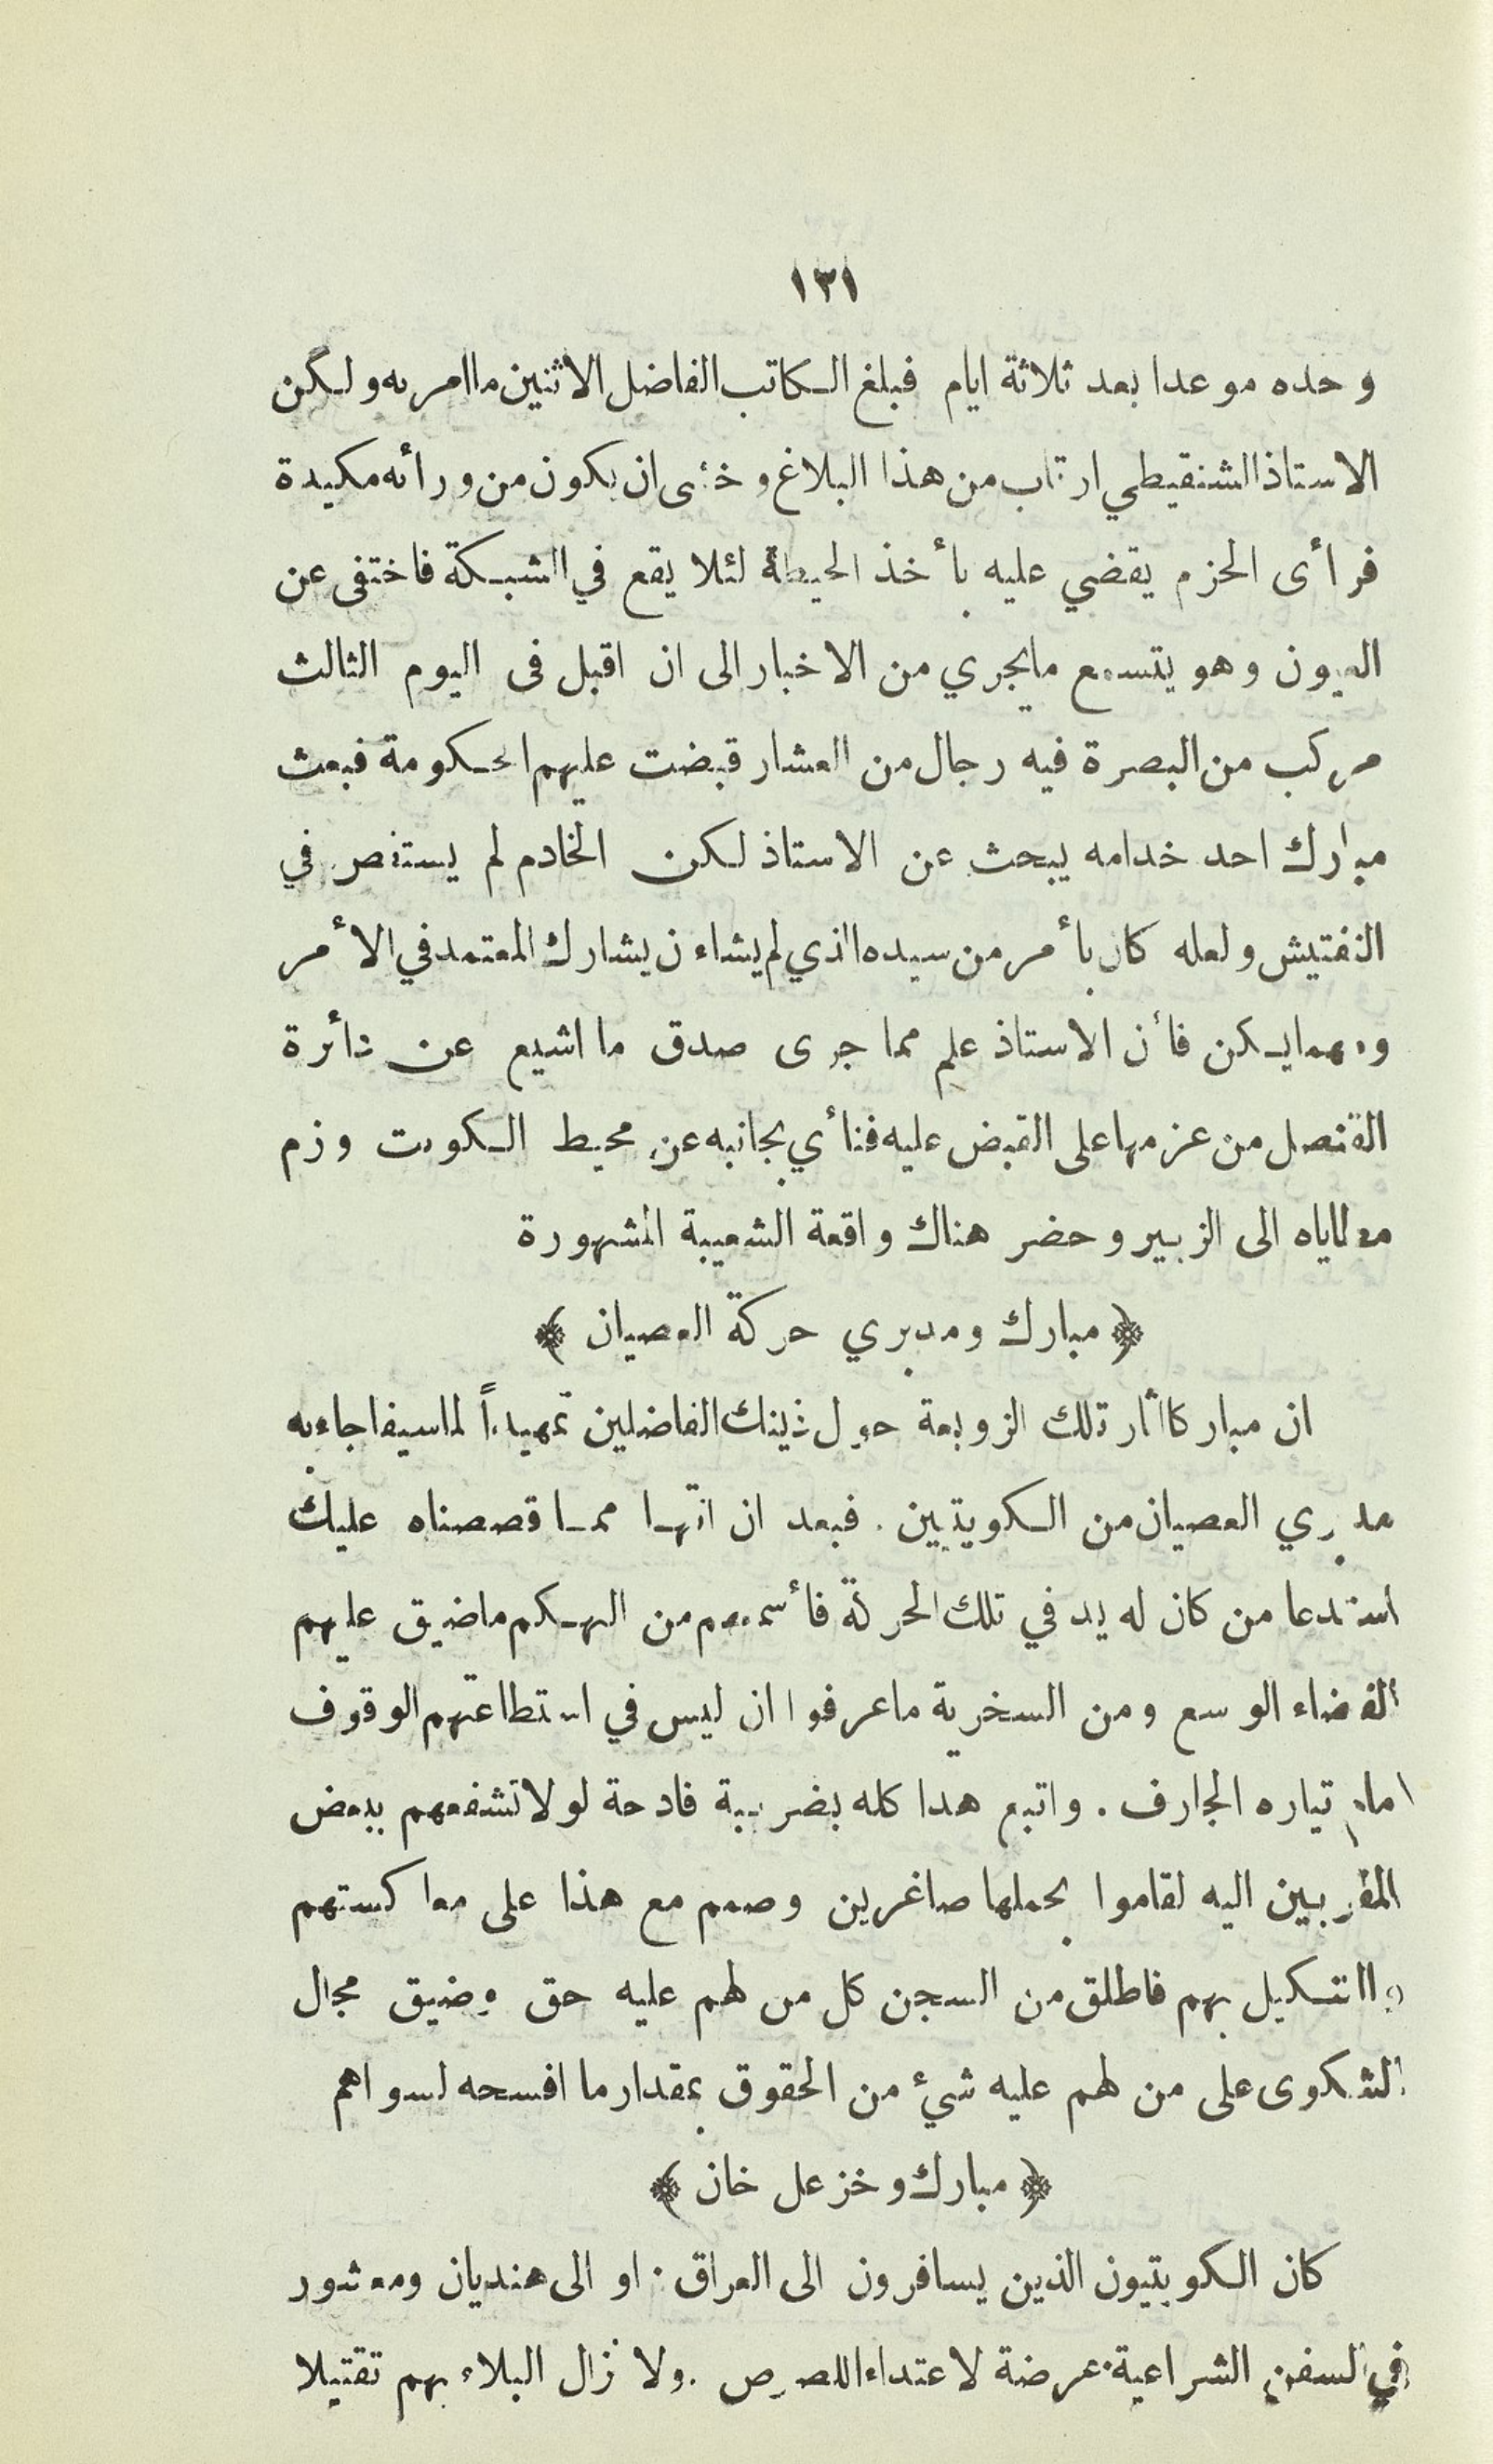 ١٣١
وحده موعدا بعد ثلاثة ايام فبلغ الكاتب الفاضل الاثنين ما امر به ولكن
الاستاذ الشنقيطي ارتاب من هذا البلاغ وخشى ان يكون من ورائه مكيدة
فرأى الحزم يقضي عليه بأخذ الحيطة لئلا يقع في الشبكة فاختفى عن
العيون وهو يتسمع مايجري من الاخبار الى ان اقبل فى اليوم الثالث
مركب من البصرة فيه رجال من العشار قبضت عليهم الحكومة فبعث
مبارك احد خدامه يبحث عن الاستاذ لكن الخادم لم يستقص في
التفتيش ولعله كان بأمر من سيده الذي لم يشاء ن يشارك المعتمد في الأمر
ومهمايكن فأن الاستاذ علم مما جرى صدق ما اشيع عن دائرة
القنصل من عزمها على القبض عليه فنأي بجانبه عن محيط الكويت وزم
مطاياه الى الزبير وحضر هناك واقعة الشعيبة المشهورة
﴿ مبارك ومدبري حركة العصيان ﴾
ان مباركا أثار تلك الزوبعة حول ذينك الفاضلين تمهيداً لماسيفاجاء به
مدبري العصيان من الكويتيين . فبعد ان انتهـا ممـا قصصناه عليك
استدعا من كان له يد في تلك الحركة فأسمعهم من التهكم ماضيق عليهم
الفضاء الوسع ومن السخرية ماعرفوا ان ليس في استطاعتهم الوقوف
امام تياره الجارف . واتبع هدا كله بضريبة فادحة لولا تشفعهم ببعض
المقربين اليه لقاموا بحملها صاغرين وصمم مع هذا على معاكستهم
والتنكيل بهم فاطلق من السجن كل من لهم عليه حق وضيق مجال
الشكوى على من لهم عليه شيٴ من الحقوق بمقدار ما افسحه لسواهم
﴿ مبارك وخزعل خان ﴾
كان الكويتيون الذين يسافرون الى العراق . او الى هنديان ومعشور
في السفن الشراعية عرضة لاعتداء اللصوص . ولا زال البلاء بهم تقتيلا